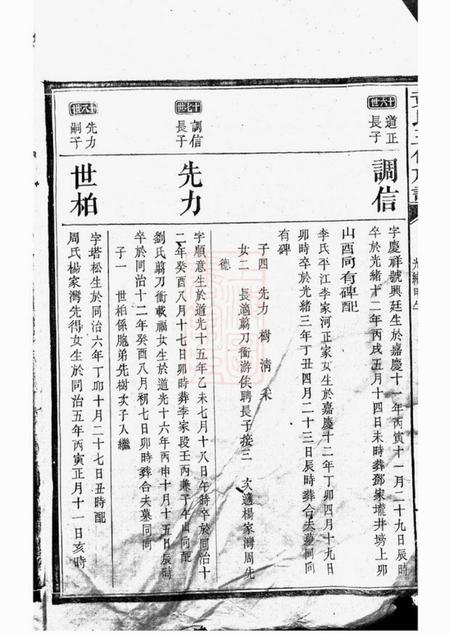 十六世
道正
長子
調信
字慶祥號興廷生於嘉慶十一年丙寅十一月二十九日辰時
卒於光緒十二年丙戌五月十四日未時葬鄧家壠井塝上卯
山酉同有碑配
李氏平江李家河正家女生於嘉慶十二年丁卯四月十九日
卯時卒於光緒三年丁丑四月二十三日辰時葬合夫墓同向
有碑
子四 先力 樹 清 釆
女二 長適翦刀衝游俟聘長子接三 次適楊家灣周先
德
十七世
調信
長子
先力
字順意生於道光十五年乙未七月十八日午時卒於同治十
二年癸酉八月十七日卯時葬李家段壬丙兼子午向同配
劉氏翦刀衝載福女生於道光十六年丙申十月十五日辰時
卒於同治十二年癸酉八月初七日卯時葬合夫墓同向
子一 世柏係胞弟先樹次子入繼
十八世
先力
嗣子
世柏
字塔松生於同治六年丁卯十月二十七日丑時配
周氏楊家灣先得女生於同治五年丙寅正月十一日亥時